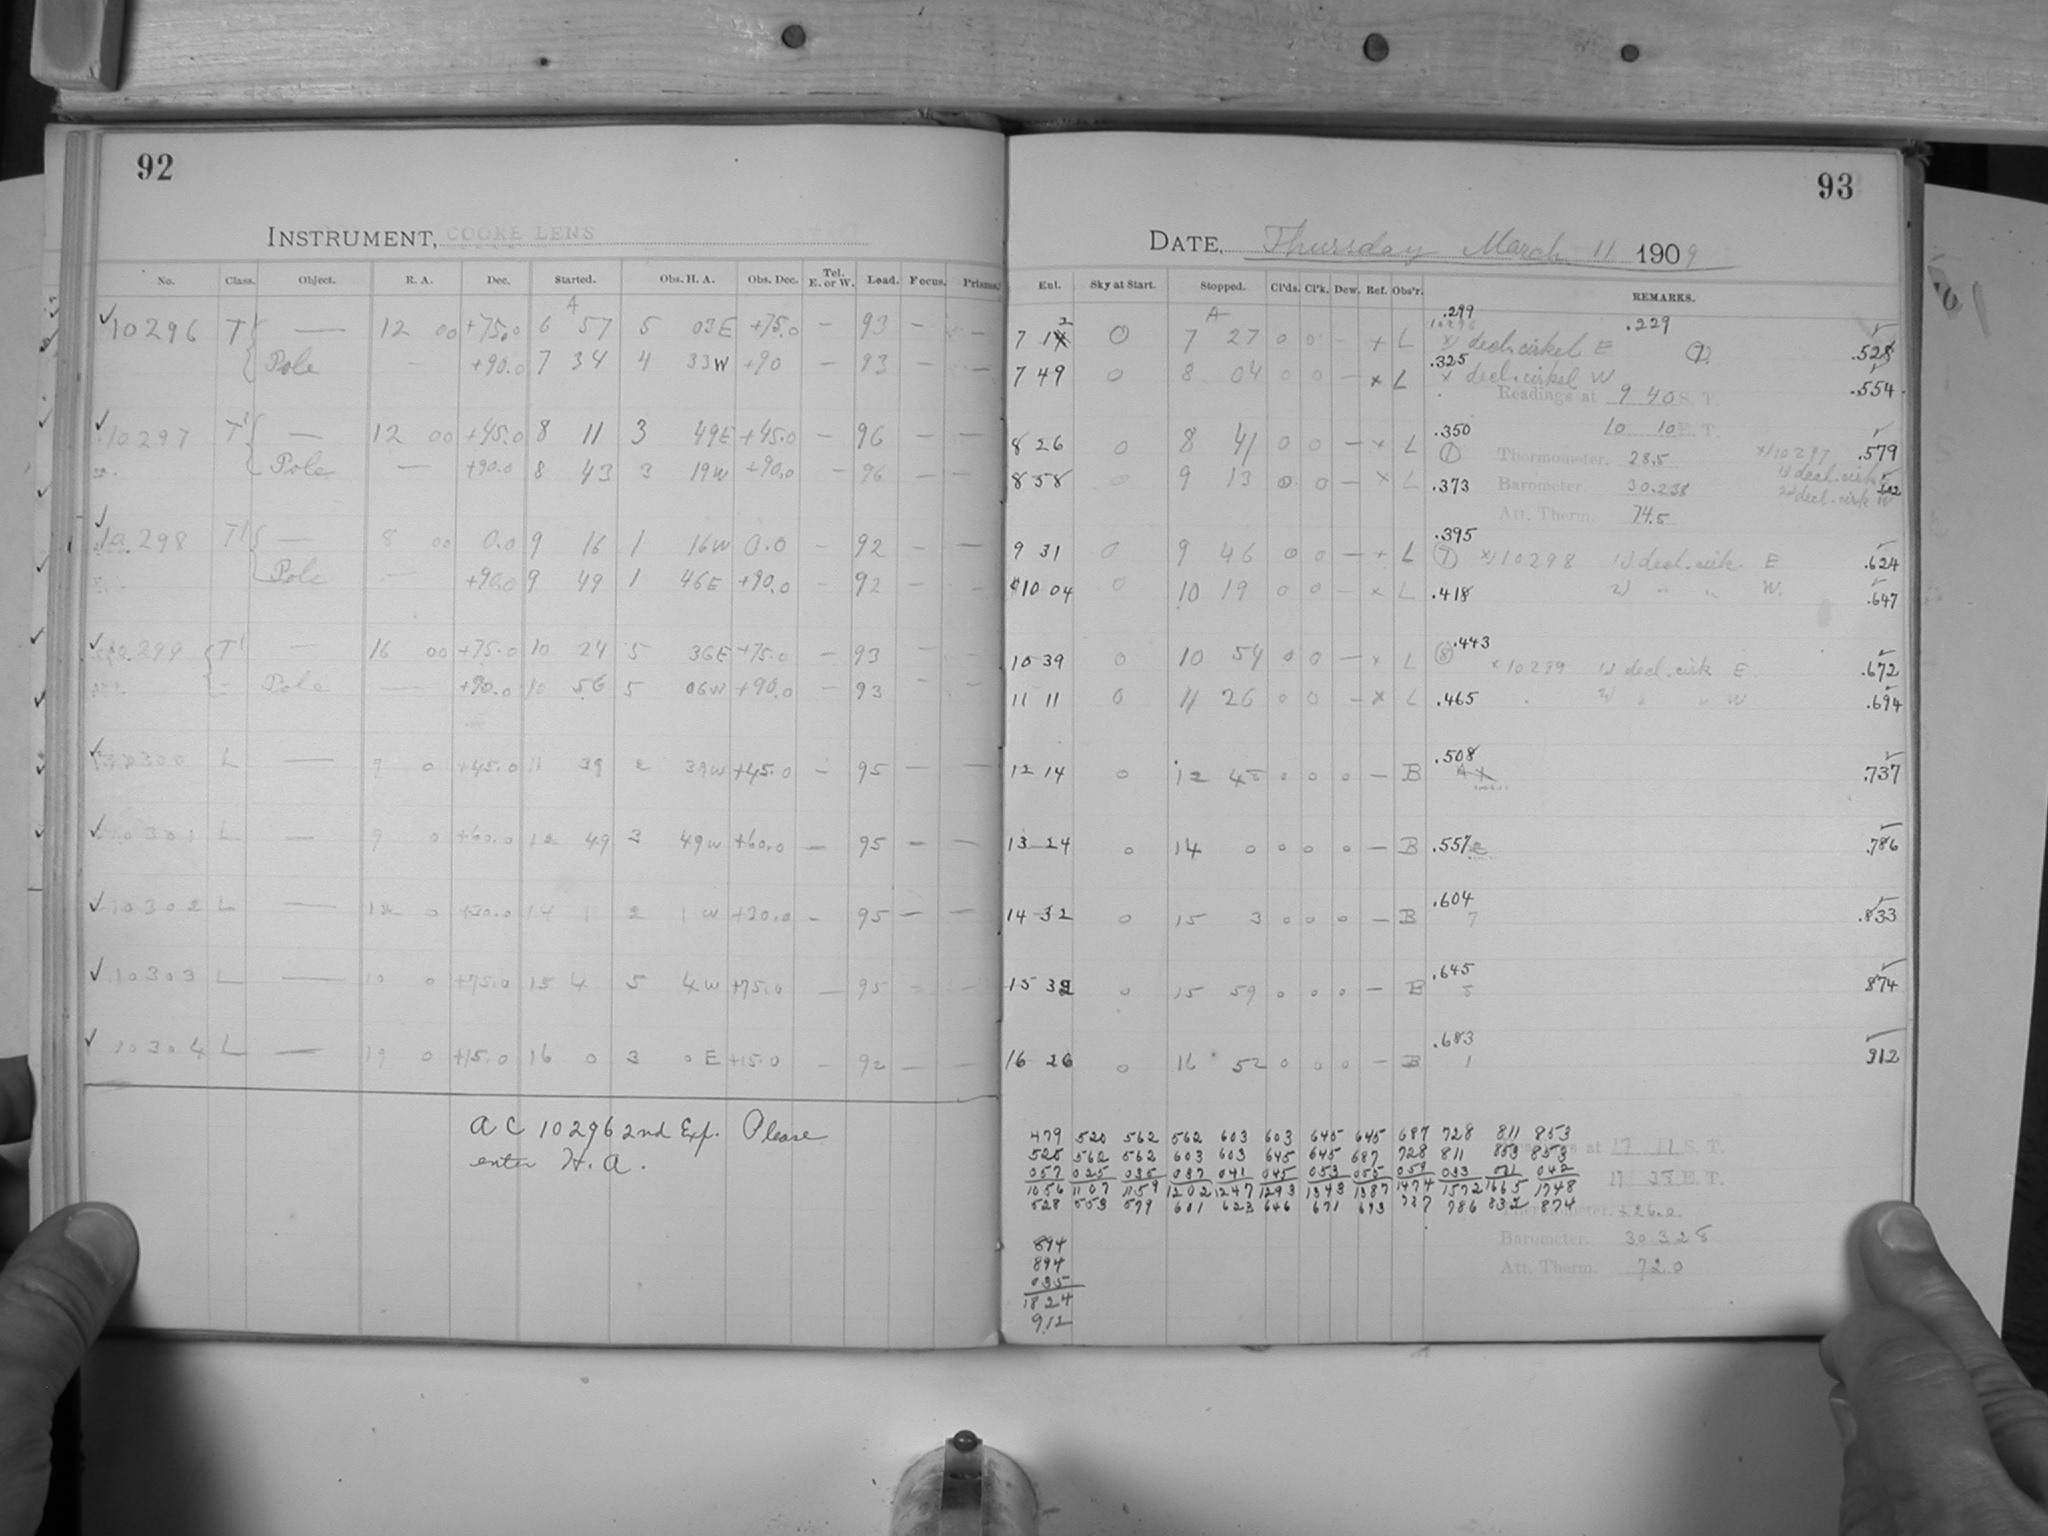 92
INSTRUMENT, COOKE LENS
No. Class. Object. R. A. Dec. Started. Obs. H. A. Obs. Dec. Tel. E. or W. Load. Focus. Prisms.
A
10296 T' — 12 00 +75.0 6 57 5 03E +75.0 — 93 — —
Pole — +90.0 7 34 4 33W +90 — 93 — —
10297 T' — 12 00 +45.0 8 11 3 49E +45.0 — 96 — —
Pole — +90.0 8 43 3 19W +90.0 — 96 — —
10298 T' — 8 00 0.0 9 16 1 16W 0.0 — 92 — —
Pole — +90.0 9 49 1 46E +90.0 — 92 — —
10299 T' — 16 00 +75.0 10 24 5 36E +75.0 — 93 — —
Pole — +90.0 10 56 5 06W +90.0 — 93 — —
10300 L — 9 0 +45.0 11 39 2 39W +45.0 — 95 — —
10301 L — 9 0 +60.0 12 49 3 49W +60.0 — 95 — —
10302 L — 12 0 +30.0 14 1 2 1W +30.0 — 95 — —
10303 L — 10 0 +75.0 15 4 5 4W +75.0 — 95 — —
10304 L — 19 0 +15.0 16 0 3 0E +15.0 — 92 — —
A C 10296 2nd Exp. Please
enter H. A.
93
DATE, Thursday March 11 1909
Enl. Sky at Start. Stopped. Cl'ds. Cl'k. Dew. Ref. Obs'r. REMARKS.
A .299 .229
7 12 0 7 27 0 0 — + L decl. cirkel E .528
7 49 0 8 04 0 0 — x L .325 x decl. cirkel W .554
Readings at 9 40 S. T.
10 10 E. T.
8 26 0 8 41 0 0 — x L .350 Thermometer. 28.5 x) 10297 .579
8 58 0 9 13 0 0 — x L .373 Barometer. 30.238 1) decl. cirk
2) decl. cirk W
Att. Therm. 74.5
.395
9 31 0 9 46 0 0 — + L x) 10298 1) decl. cirk. E .624
10 04 0 10 19 0 0 — x L .418 2) " " W. .647
.443
10 39 0 10 54 0 0 — x L x 10299 1) decl. cirk E. .672
11 11 0 11 26 0 0 — x L .465 2) " " W .694
.508
12 14 0 12 48 0 0 0 — B .737
13 24 0 14 0 0 0 0 — B .557 .786
.604
14 32 0 15 3 0 0 0 — B 7 .833
.645
15 32 0 15 59 0 0 0 — B 874
.683
16 26 0 16 52 0 0 0 — B 1 912
479 520 562 562 603 603 645 645 687 728 811 853
520 562 562 603 603 645 645 687 728 811 853 853
057 025 035 037 041 045 053 055 059 033 001 042
1056 1107 1159 1202 1247 1293 1343 1387 1474 1572 1665 1748
528 553 579 601 623 646 671 693 737 786 832 874
Readings at 17 11 S. T.
17 35 E. T.
Thermometer. +26.0
Barometer. 30.328
Att. Therm. 72.0
894
894
035
1824
912